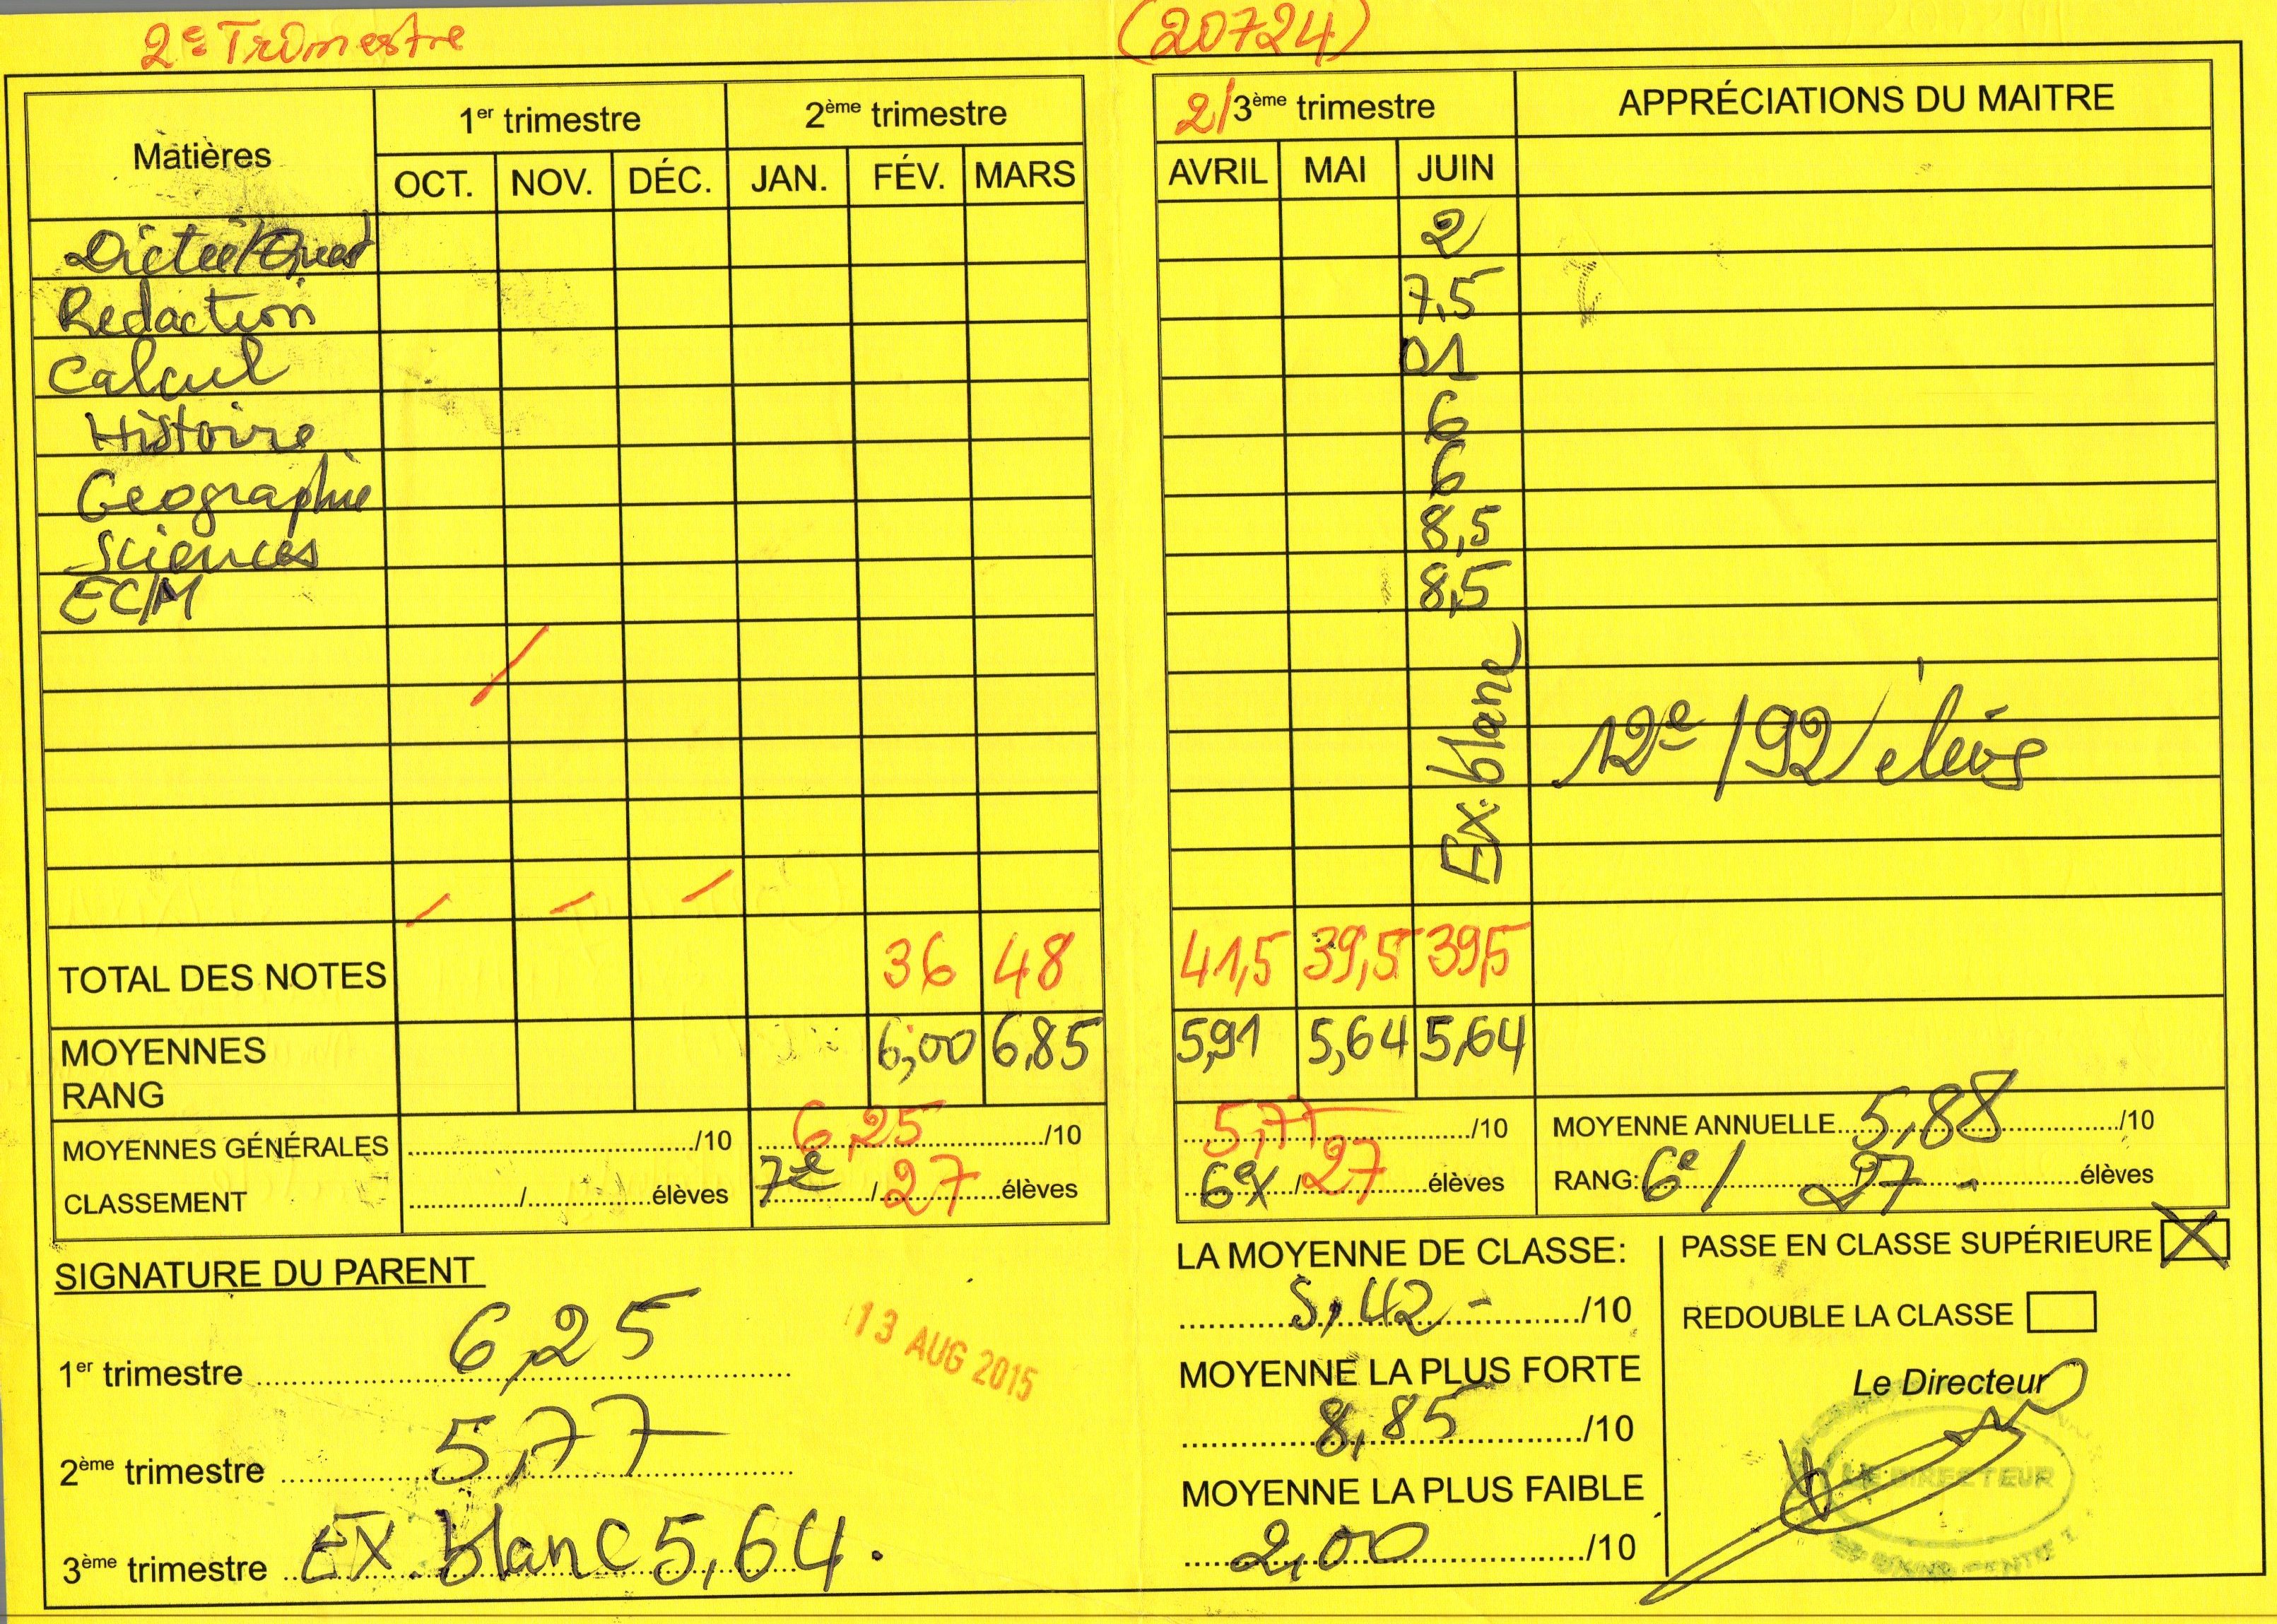 2e Trimestre (20724)
Matières 1er trimestre 2ème trimestre 2/3ème trimestre APPRÉCIATIONS DU MAITRE
OCT. NOV. DÉC. JAN. FÉV. MARS AVRIL MAI JUIN
Dictée/Quest 2
Redaction 7,5
Calcul 01
Histoire 6
Geographie 6
Sciences 8,5
EC/M 8,5
Ex: blanc
12e /92 élèves
TOTAL DES NOTES 36 48 41,5 39,5 39,5
MOYENNES 6,00 6,85 5,91 5,64 5,64
RANG
MOYENNES GÉNÉRALES /10 6,25 /10 5,77 /10 MOYENNE ANNUELLE 5,88 /10
CLASSEMENT / élèves 7e / 27 élèves 6ex / 27 élèves RANG: 6e / 27 élèves
SIGNATURE DU PARENT
1er trimestre 6,25
2ème trimestre 5,77
3ème trimestre EX. blanc 5,64.
13 AUG 2015
LA MOYENNE DE CLASSE:
5,42 /10
MOYENNE LA PLUS FORTE
8,85 /10
MOYENNE LA PLUS FAIBLE
2,00 /10
PASSE EN CLASSE SUPÉRIEURE X
REDOUBLE LA CLASSE
Le Directeur
LE DIRECTEUR